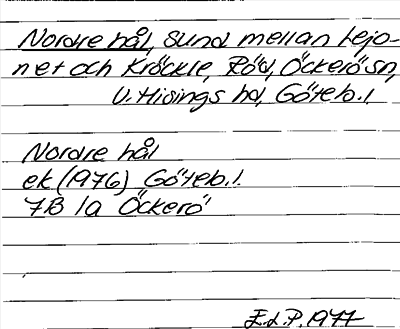 Nordre hål, sund mellan Lejo-
net och Kröckle, Röd, Öckerö sn,
V. Hisings hd, Göteb. l.
Nordre hål
ek (1976) Göteb. l.
7B 1a Öckerö
E.L.P. 1977